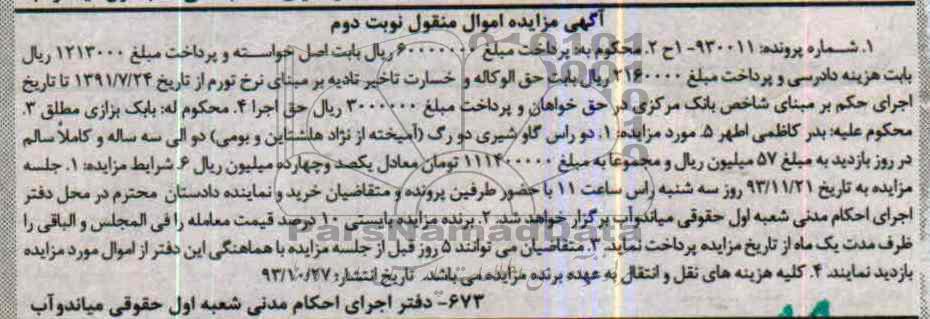 آگهی مزایده اموال منقول نوبت دوم
۱. شماره پرونده: ۹۳۰۰۱۱-۱ح ۲. محکوم به: پرداخت مبلغ ۶۰۰۰۰۰۰۰ ریال بابت اصل خواسته و پرداخت مبلغ ۱۲۱۳۰۰۰ ریال
بابت هزینه دادرسی و پرداخت مبلغ ۲۱۶۰۰۰۰ ریال بابت حق الوکاله و خسارت تاخیر تادیه بر مبنای نرخ تورم از تاریخ ۱۳۹۱/۷/۲۴ تا تاریخ
اجرای حکم بر مبنای شاخص بانک مرکزی در حق خواهان و پرداخت مبلغ ۳۰۰۰۰۰۰ ریال حق اجرا ۴. محکوم له: بابک بزازی مطلق ۳.
محکوم علیه: بدر کاظمی اطهر ۵. مورد مزایده: ۱. دو راس گاو شیری دو رگ (آمیخته از نژاد هلشتاین و بومی) دو الی سه ساله و کاملاً سالم
در روز بازدید به مبلغ ۵۷ میلیون ریال و مجموعاً به مبلغ ۱۱۱۴۰۰۰۰۰ تومان معادل یکصد وچهارده میلیون ریال ۶. شرایط مزایده: ۱. جلسه
مزایده به تاریخ ۹۳/۱۱/۲۱ روز سه شنبه راس ساعت ۱۱ با حضور طرفین پرونده و متقاضیان خرید و نماینده دادستان محترم در محل دفتر
اجرای احکام مدنی شعبه اول حقوقی میاندوآب برگزار خواهد شد. ۲. برنده مزایده بایستی ۱۰ درصد قیمت معامله را فی المجلس و الباقی را
ظرف مدت یک ماه از تاریخ مزایده پرداخت نماید. ۳. متقاضیان می توانند ۵ روز قبل از جلسه مزایده با هماهنگی این دفتر از اموال مورد مزایده
بازدید نمایند. ۴. کلیه هزینه های نقل و انتقال به عهده برنده مزایده می باشد. تاریخ انتشار: ۹۳/۱۰/۲۷
۶۷۳- دفتر اجرای احکام مدنی شعبه اول حقوقی میاندوآب
ParsNamadData